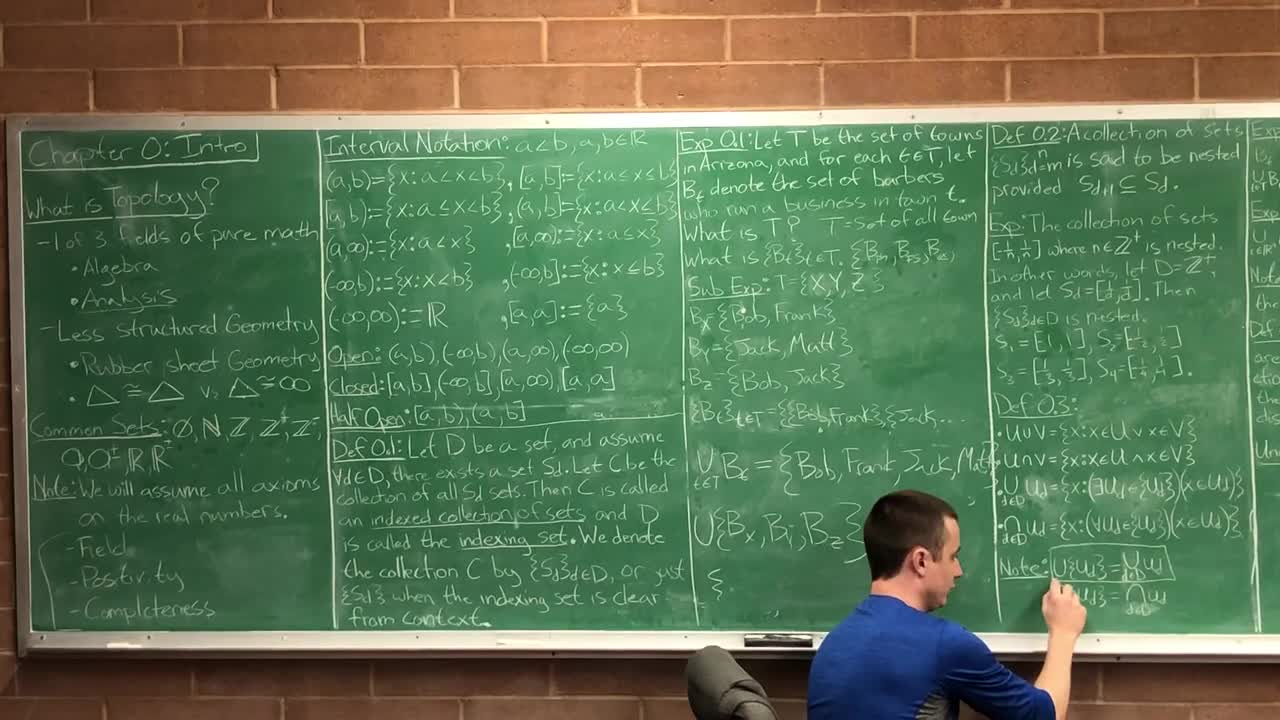 Chapter 0: Intro
What is Topology?
- 1 of 3 fields of pure math
• Algebra
• Analysis
- Less structured Geometry
• Rubber sheet Geometry
• △ ≅ △ vs △ ≅ ∞
Common Sets: ∅, ℕ, ℤ, ℤ⁺, ℤ⁻,
ℚ, ℚ± ℝ, ℝ±
Note: We will assume all axioms
on the real numbers.
- Field
- Positivity
- Completeness
Interval Notation: a<b, a,b∈ℝ
(a,b)={x: a<x<b}, [a,b]={x: a≤x≤b}
[a,b)={x: a≤x<b}, (a,b]={x: a<x≤b}
(a,∞):={x: a<x}, [a,∞):={x: a≤x}
(-∞,b):={x: x<b}, (-∞,b]:={x: x≤b}
(-∞,∞):=ℝ, [a,a]:={a}
Open: (a,b), (-∞,b), (a,∞), (-∞,∞)
Closed: [a,b], (-∞,b], [a,∞), [a,a]
Half Open: [a,b), (a,b]
Def 0.1: Let D be a set, and assume
∀d∈D, there exists a set Sd. Let C be the
collection of all Sd sets. Then C is called
an indexed collection of sets, and D
is called the indexing set. We denote
the collection C by {Sd}d∈D, or just
{Sd} when the indexing set is clear
from context.
Exp 0.1: Let T be the set of towns
in Arizona, and for each t∈T, let
Bt denote the set of barbers
who run a business in town t.
What is T? T = Set of all town
What is {Bt}t∈T,
Sub Exp: T={X,Y,Z}
Bx={Bob, Frank}
By={Jack, Matt}
Bz={Bob, Jack}
{Bt}t∈T={{Bob, Frank},{Jack,...
∪ t∈T Bt = {Bob, Frank, Jack, Matt
∪{Bx, By, Bz}
Def 0.2: A collection of sets
{Sd}ⁿd=m is said to be nested
provided Sd+1 ⊆ Sd.
Exp: The collection of sets
where n∈ℤ⁺ is nested.
In other words, let D=ℤ⁺,
and let Sd= Then
{Sd}d∈D is nested.
Def 0.3:
• U∪V={x: x∈U ∨ x∈V}
• U∩V={x: x∈U ∧ x∈V}
• ∪ d∈D Ud={x: (∃Ud∈{Ud})(x∈Ud)}
• ∩ d∈D Ud={x: (∀Ud∈{Ud})(x∈Ud)}
Note: ∪{Ud}=∪ d∈D Ud
Ud}=∩ d∈D Ud